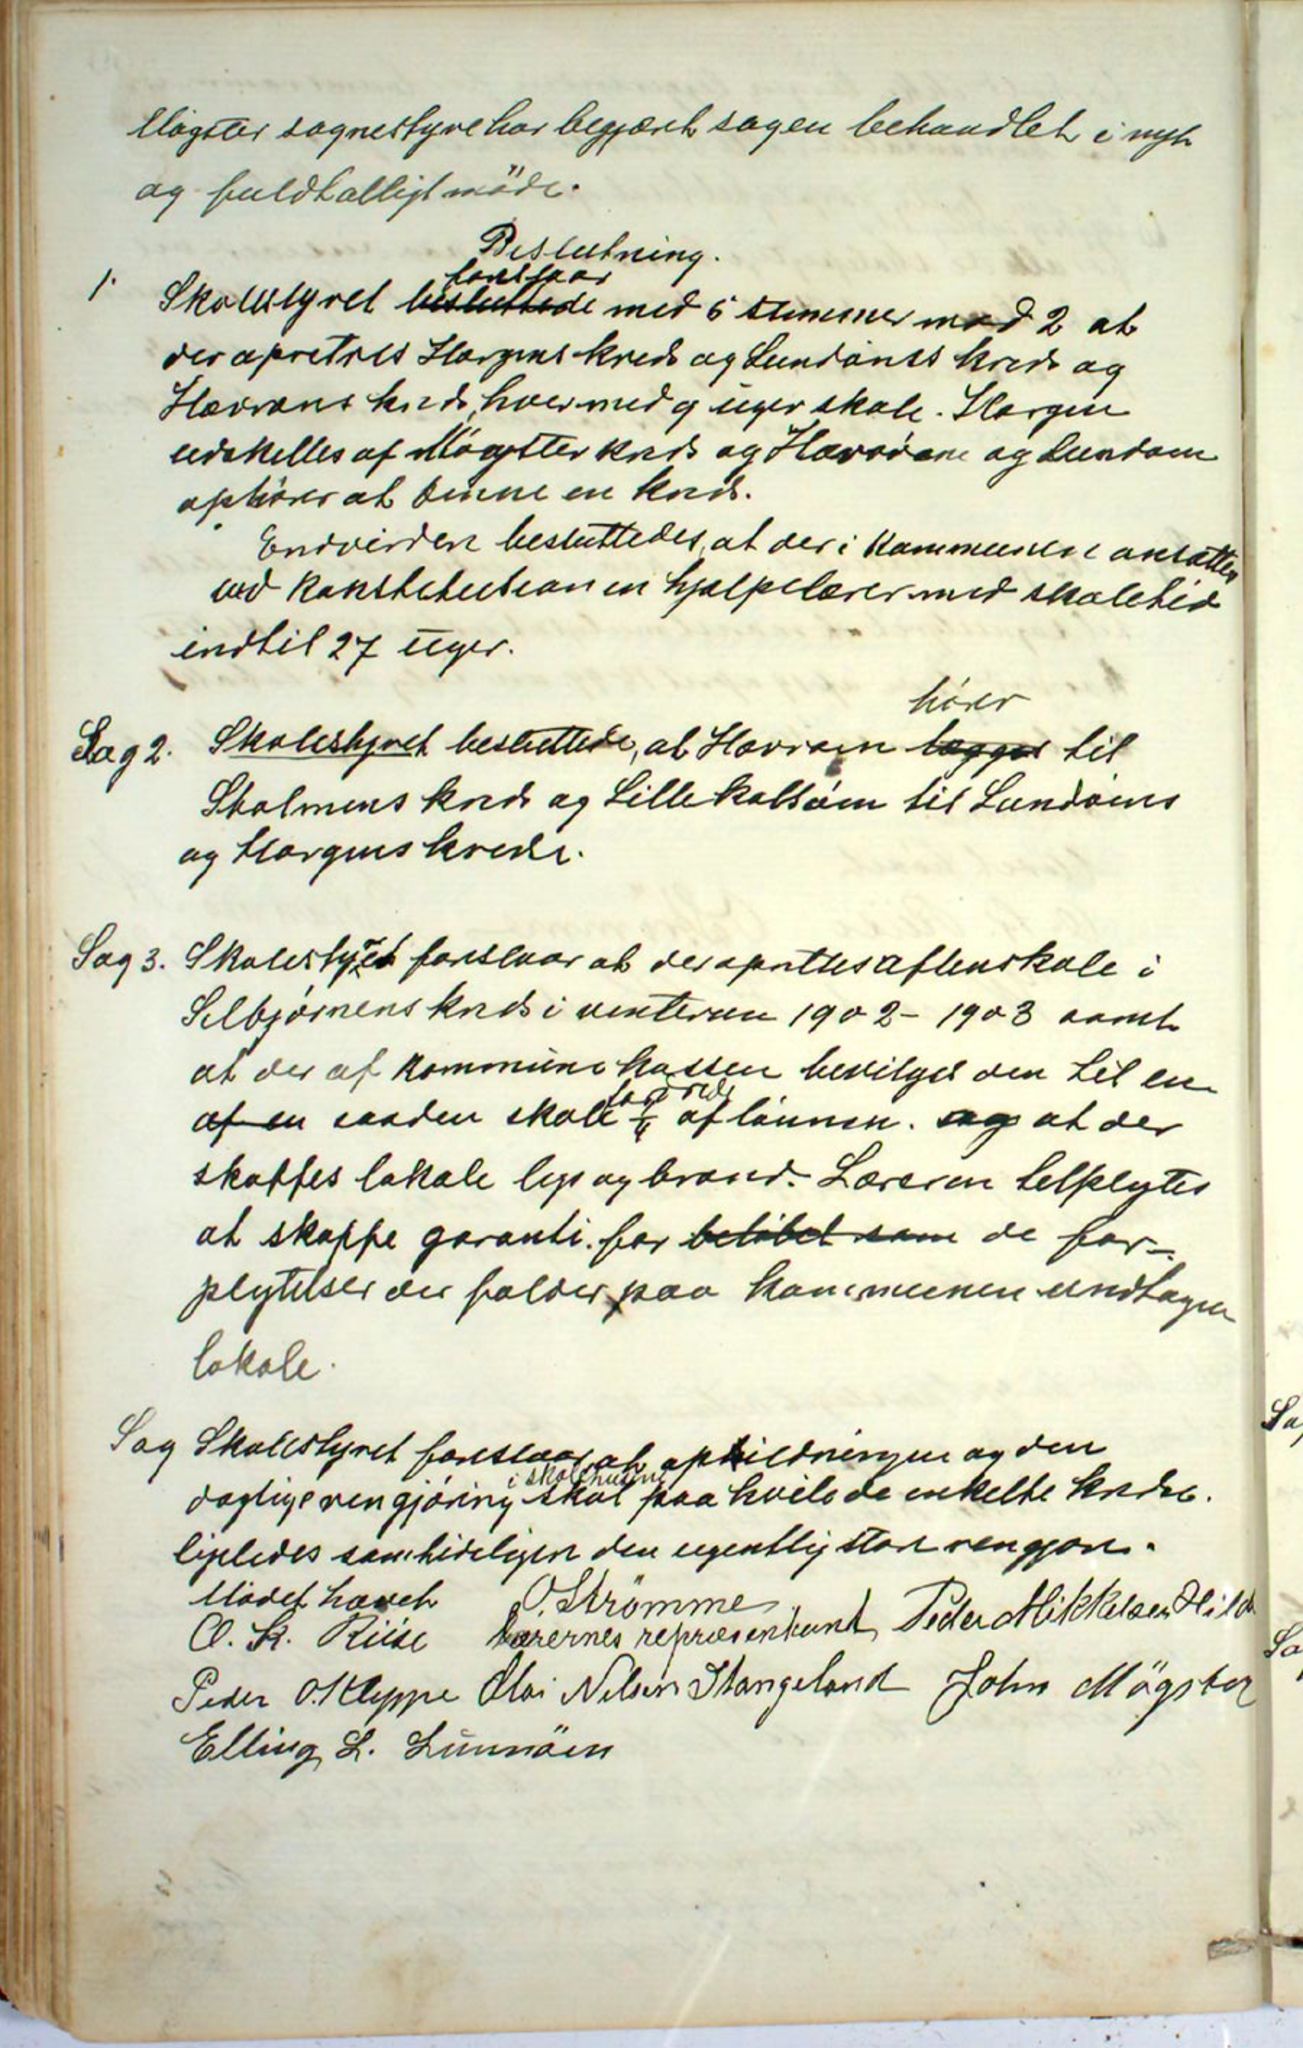 Møgster sognestyre har begjæret sagen behandlet i nyt
og fuldtalligt møde.
Beslutning.
foreslaar
1. Skolestyret besluttede med 5 stemmer mod 2 at
der oprettes Horgens kreds og Lundøns kreds og
Havrøns kreds, hver med 9 uger skole. Horgen
udskilles af Møgster kreds og Havrøen og Lundøen
ophører at danne en kreds.
Endvidere besluttedes, at der i kommunen ansættes
ved konstitution en hjælpelærer med skoletid
indtil 27 uger.
hører
Sag 2. Skolestyret besluttede, at Havrøen lægges til
Stolmens kreds og Lille Kalsøen til Lundøens
og Horgens kreds.
Sag 3. Skolestyret foreslaar at der oprettes aftenskole i
Selbjørnens kreds i vinteren 1902-1903 samt
at der af kommunekassen bevilges den til en
af en saadan skole 1/6 af lønnen. og at der
skaffes lokale lys og brænd. Læreren tilpligtes
at skaffe garanti for beløbet som de for-
pligtelser der falder paa kommunen undtagen
lokale.
Sag Skolestyret foreslaar at ophildningen og den
i skolehusene
daglige rengjøring skal paa hvile de enkelte kredse.
ligeledes samtidigen den egentlig store rengjøring.
Mødet hævet O. Strømme Peder Mikkelsen Hild
O. K. Riise lærernes repræsentant
Peder O. Kleppe Olai Nilsen Stangeland John Møgster
Elling L. Lunnøen
Sag
Sa